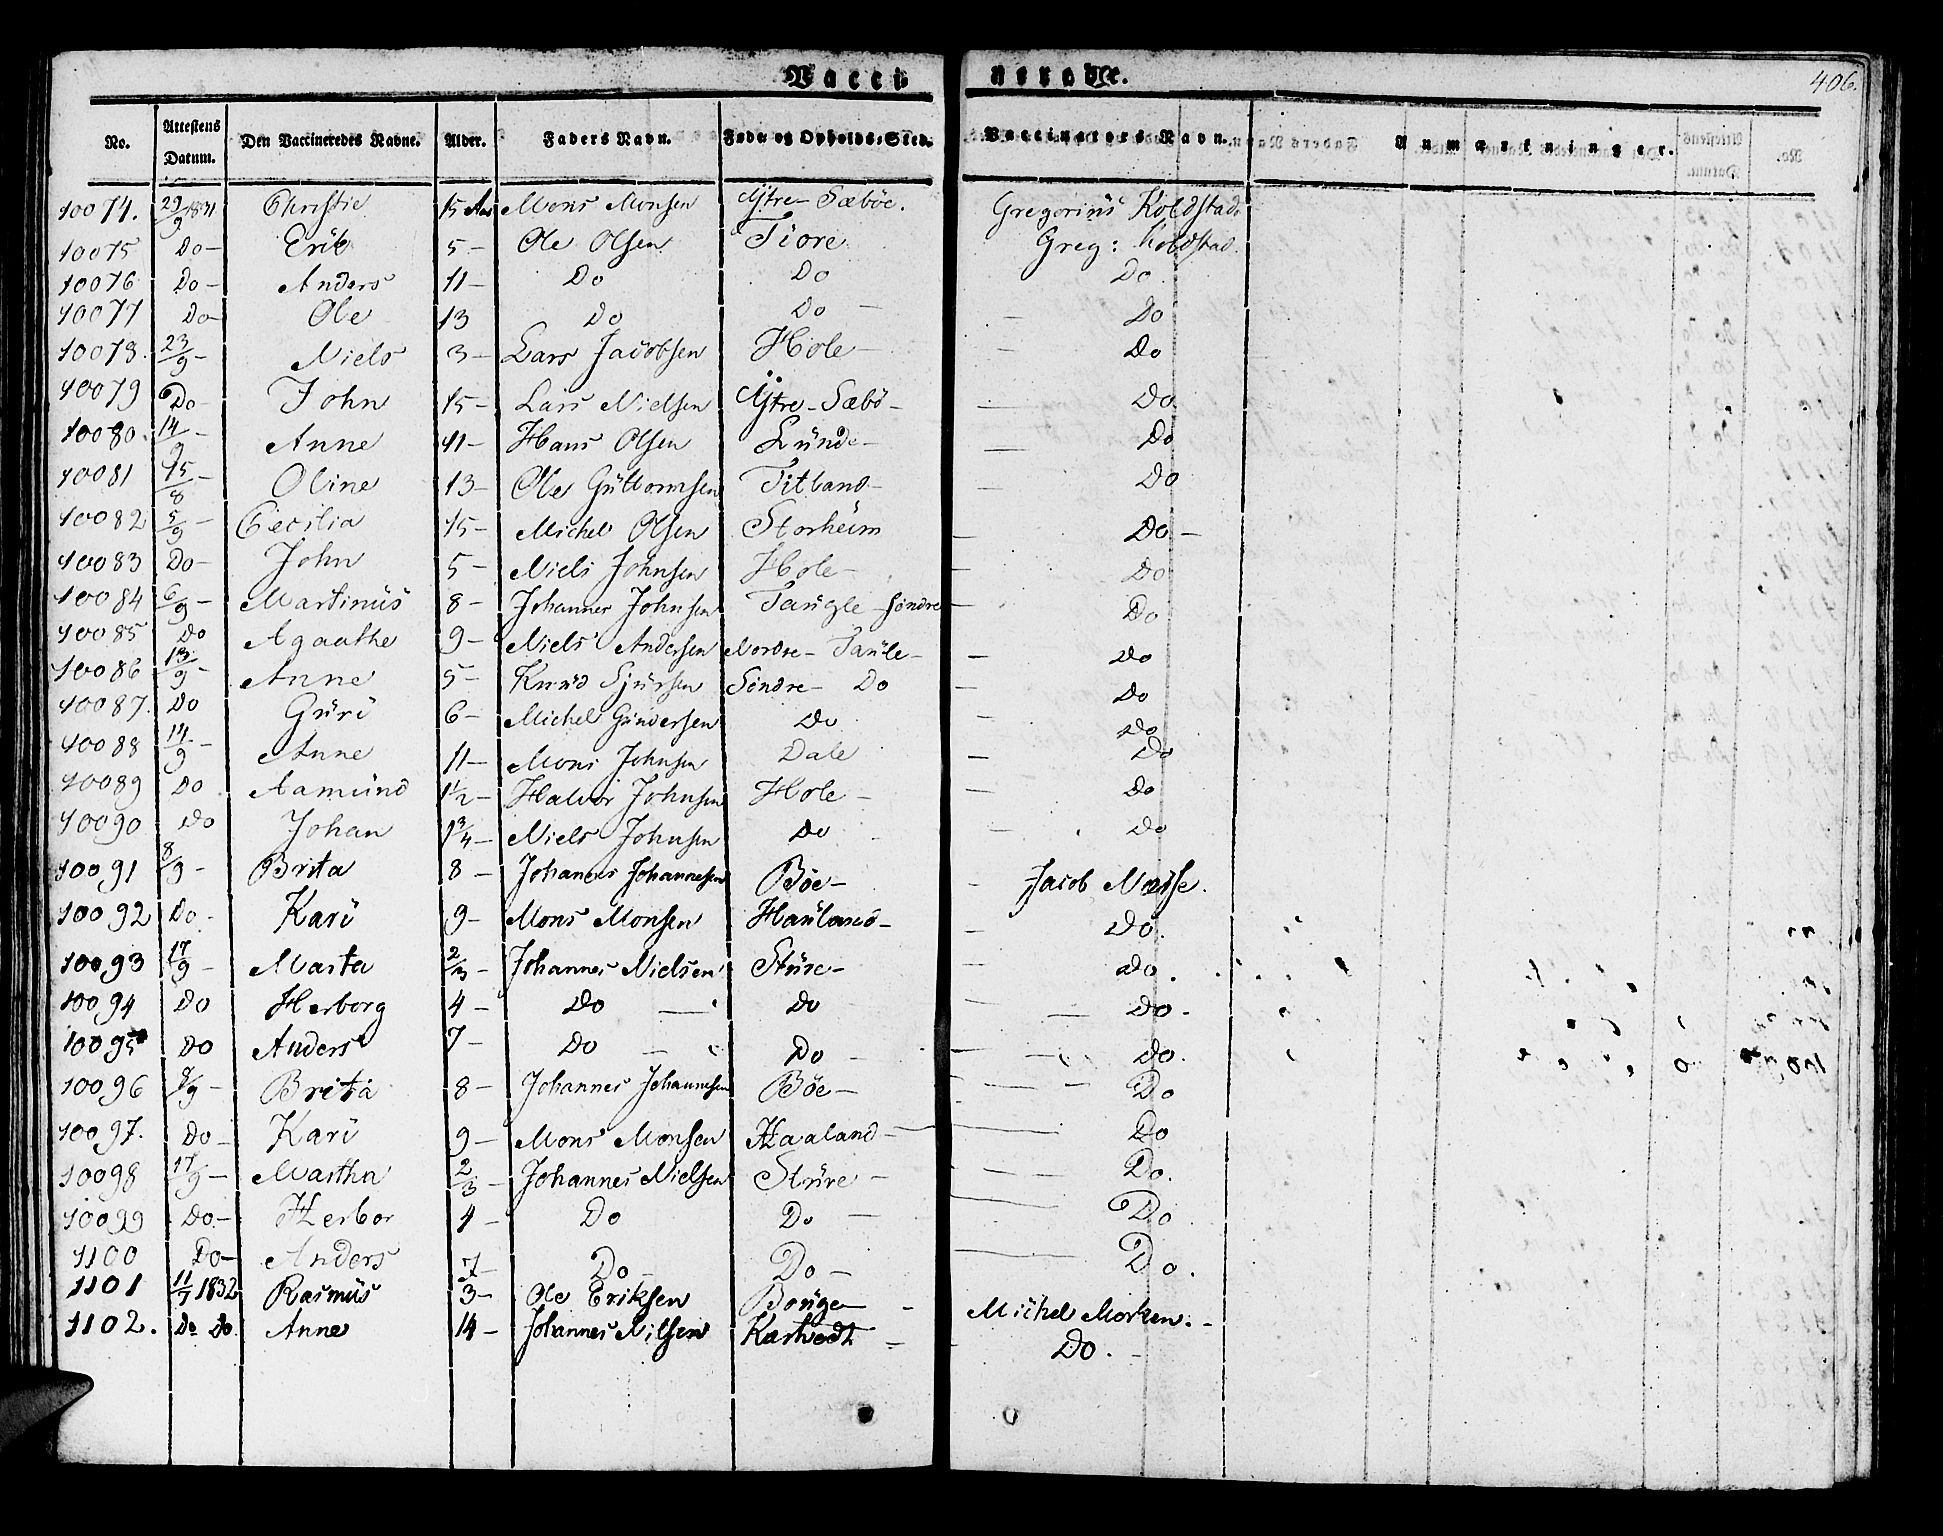 Vacci nerede.
406.
No. Attestens Datum. Den Vaccineredes Navne. Alder. Faders Navn. Føde og Opholds-Sted. Vaccinators Navn. Anmærkninger.
10074. 29/9 1831 Christie 15 Aar Mons Monsen Ÿtre- Sæböe. Gregorius Koldstad.
10075 Do- Erik 5- Ole Olsen Tiore Greg: Koldstad.
10076 Do- Anders 11- Do Do Do
10077 Do- Ole 13 Do Do - - Do
10078. 23/9- Niels 3- Lars Jacobsen Hole - Do
10079 Do- John 15- Lars Nielsen Ÿtre- Sæbö- - Do
10080. 14/9- Anne 11- Hans Olsen Lunde- - Do
10081 15/8- Oline 13- Ole Guttormsen Titland- - Do
10082 5/9- Cecilia 15- Michel Olsen Storheim - Do-
10083 Do- John 5- Niels Johnsen Hole- - Do
10084 6/9- Martinus 8- Johannes Johnsen Taugle Söndre- Do
10085 Do Agaathe 9- Niels Andersen Nordre- Taule- - Do
10086 13/9- Anne 5- Knud Sjursen Söndre- Do - Do
10087. Do Guri 6- Michel Gundersen Do - Do
10088 14/9- Anne 11- Mons Johnsen Dale - Do
10089 Do Aamund 1½- Halvor Johnsen Hole- - Do
10090 Do Johan 1¾- Niels Johnsen Do - Do
10091 8/9- Brita 8- Johannes Johannesen Böe- - Jacob Næsse.
10092 Do- Kari 9- Mons Monsen Hauland- - Do.
10093 17/9- Marta 2/3- Johannes Nielsen Sture- - Do.
10094 Do Herborg 4- Do - Do - Do.
10095 Do Anders 7- Do - Do - - Do.
10096 8/9- Brita 8- Johannes Johannesen Böe- - Do
10097. Do- Kari 9- Mons Monsen Haaland- - Do
10098 17/9- Martha 2/3- Johannes Nielsen Sture- - Do.
10099 Do- Herbor 4- Do Do - - Do
1100 Do- Anders 7- Do- Do- - Do.
1101 11/7 1832 Rasmus 3- Ole Eriksen Bouge- - Michel Morken.-
1102. Do Do. Anne 14- Johannes Nilsen Kartvedt - Do.-